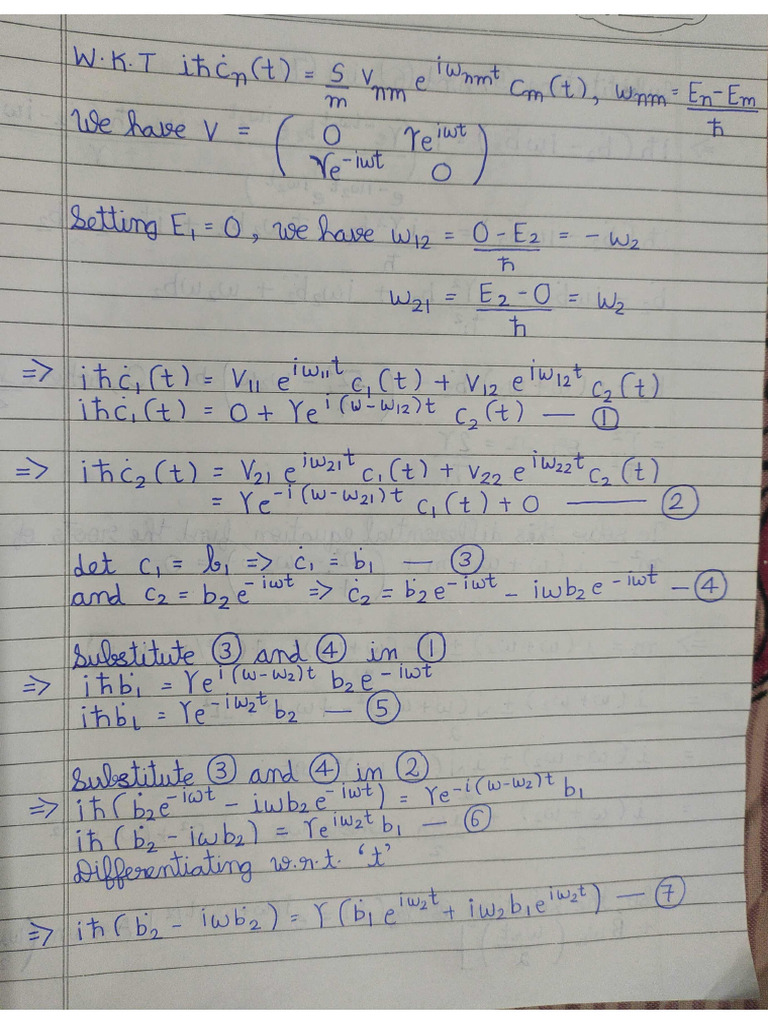 W.K.T iħċₙ(t) = S/m Vₙₘ e^(iωₙₘt) cₘ(t), ωₙₘ = (Eₙ-Eₘ)/ħ
We have V = ( 0 γe^(iωt)
γe^(-iωt) 0 )
Setting E₁ = 0, we have ω₁₂ = (0-E₂)/ħ = -ω₂
ω₂₁ = (E₂-0)/ħ = ω₂
=> iħċ₁(t) = V₁₁ e^(iω₁₁t) c₁(t) + V₁₂ e^(iω₁₂t) c₂(t)
iħċ₁(t) = 0 + γe^(i(ω-ω₁₂)t) c₂(t) — ①
=> iħċ₂(t) = V₂₁ e^(iω₂₁t) c₁(t) + V₂₂ e^(iω₂₂t) c₂(t)
= γe^(-i(ω-ω₂₁)t) c₁(t) + 0 — ②
Let c₁ = b₁ => ċ₁ = ḃ₁ — ③
and c₂ = b₂e^(-iωt) => ċ₂ = ḃ₂e^(-iωt) - iωb₂e^(-iωt) — ④
Substitute ③ and ④ in ①
=> iħḃ₁ = γe^(i(ω-ω₂)t) b₂e^(-iωt)
iħḃ₁ = γe^(-iω₂t) b₂ — ⑤
Substitute ③ and ④ in ②
=> iħ(ḃ₂e^(-iωt) - iωb₂e^(-iωt)) = γe^(-i(ω-ω₂)t) b₁
iħ(ḃ₂ - iωb₂) = γe^(iω₂t) b₁ — ⑥
Differentiating w.r.t. 't'
=> iħ(ḃ₂ - iωḃ₂) = γ(ḃ₁ e^(iω₂t) + iω₂b₁e^(iω₂t)) — ⑦